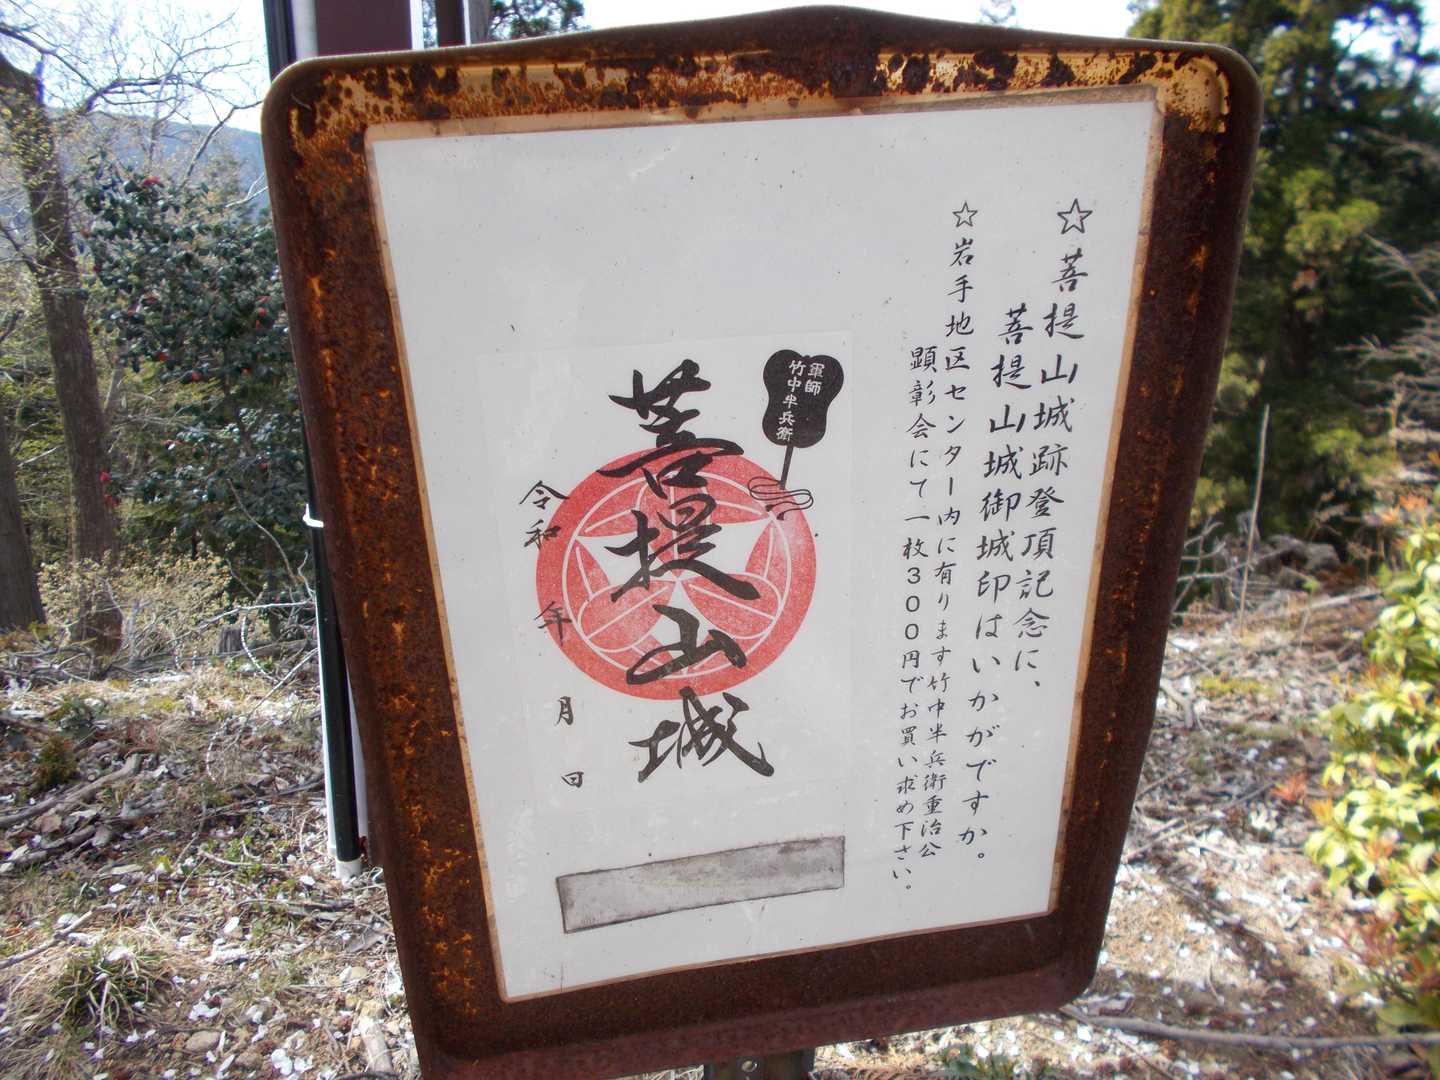 ☆菩提山城跡登頂記念に、
菩提山城御城印はいかがですか。
☆岩手地区センター内に有ります竹中半兵衛重治公
顕彰会にて一枚300円でお買い求め下さい。
軍師
竹中半兵衛
菩提山城
令和 年 月 日